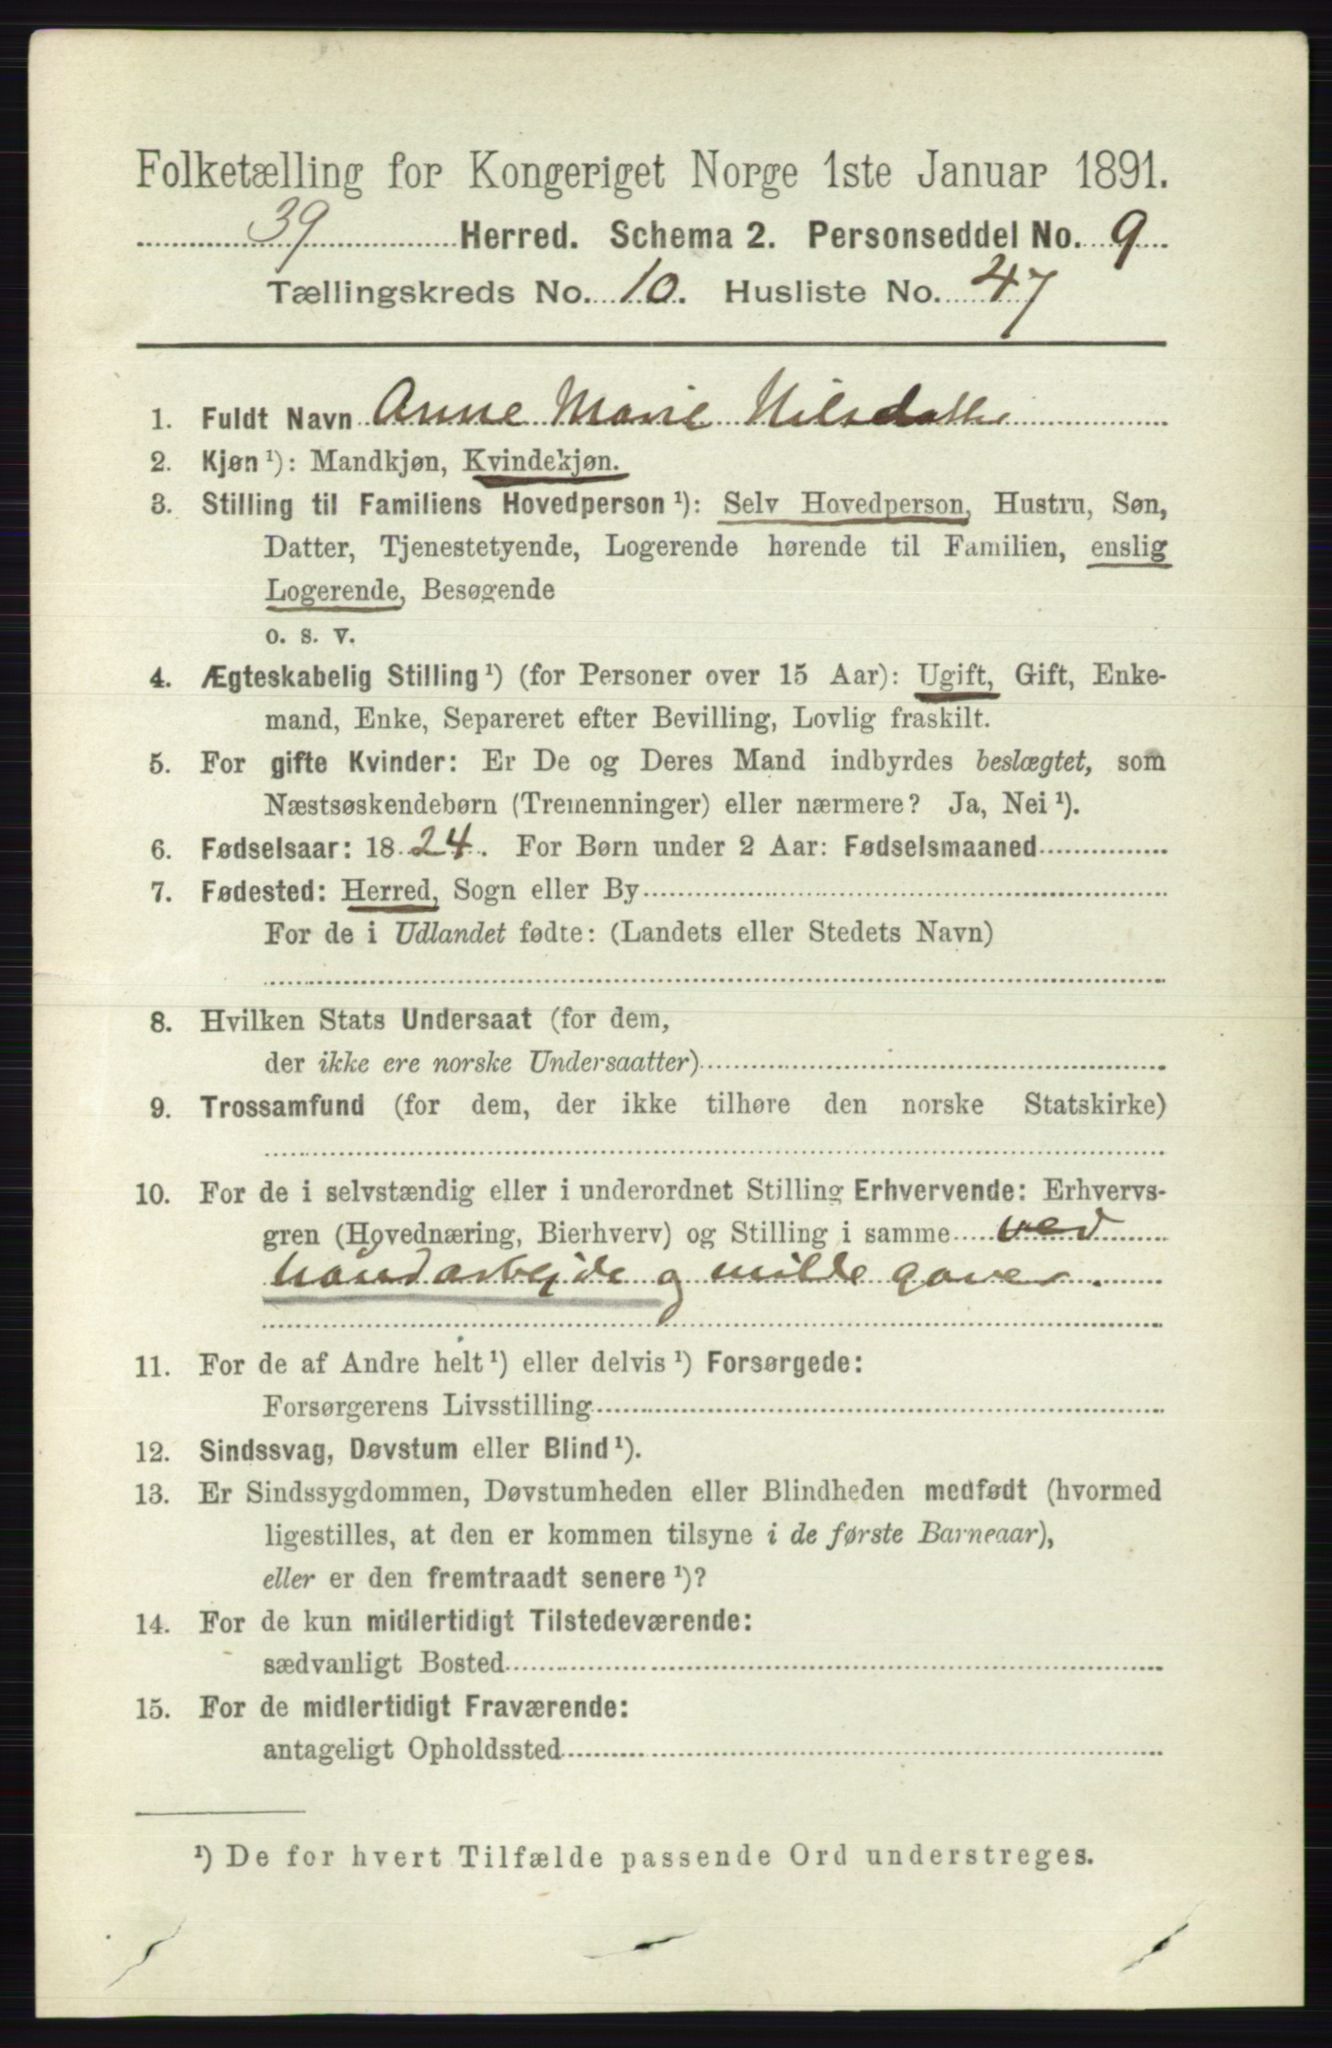 Folketælling for Kongeriget Norge 1ste Januar 1891.
39 Herred. Schema 2. Personseddel No. 9
Tællingskreds No. 10. Husliste No. 47
1. Fuldt Navn Anne Marie Nilsdatter
2. Kjøn¹): Mandkjøn, Kvindekjøn.
3. Stilling til Familiens Hovedperson¹): Selv Hovedperson, Hustru, Søn,
Datter, Tjenestetyende, Logerende hørende til Familien, enslig
Logerende, Besøgende
o. s. v.
4. Ægteskabelig Stilling¹) (for Personer over 15 Aar): Ugift, Gift, Enke-
mand, Enke, Separeret efter Bevilling, Lovlig fraskilt.
5. For gifte Kvinder: Er De og Deres Mand indbyrdes beslægtet, som
Næstsøskendebørn (Tremenninger) eller nærmere? Ja, Nei¹).
6. Fødselsaar: 1824. For Børn under 2 Aar: Fødselsmaaned
7. Fødested: Herred, Sogn eller By
For de i Udlandet fødte: (Landets eller Stedets Navn)
8. Hvilken Stats Undersaat (for dem,
der ikke ere norske Undersaatter)
9. Trossamfund (for dem, der ikke tilhøre den norske Statskirke)
10. For de i selvstændig eller i underordnet Stilling Erhvervende: Erhvervs-
gren (Hovednæring, Bierhverv) og Stilling i samme ved
haandarbejde og milde gaver.
11. For de af Andre helt¹) eller delvis¹) Forsørgede:
Forsørgerens Livsstilling
12. Sindssvag, Døvstum eller Blind¹).
13. Er Sindssygdommen, Døvstumheden eller Blindheden medfødt (hvormed
ligestilles, at den er kommen tilsyne i de første Barneaar),
eller er den fremtraadt senere¹)?
14. For de kun midlertidigt Tilstedeværende:
sædvanligt Bosted
15. For de midlertidigt Fraværende:
antageligt Opholdssted
¹) De for hvert Tilfælde passende Ord understreges.